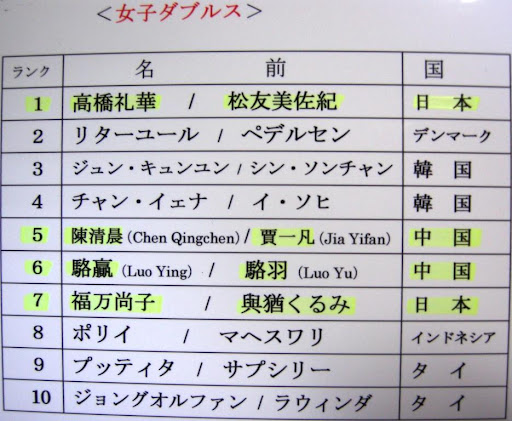 ＜女子ダブルス＞
ランク 名 前 国
1 高橋礼華 / 松友美佐紀 日 本
2 リターユール / ペデルセン デンマーク
3 ジュン・キュンユン / シン・ソンチャン 韓 国
4 チャン・イェナ / イ・ソヒ 韓 国
5 陳清晨 (Chen Qingchen) / 賈一凡 (Jia Yifan) 中 国
6 駱贏 (Luo Ying) / 駱羽 (Luo Yu) 中 国
7 福万尚子 / 與猶くるみ 日 本
8 ポリイ / マヘスワリ インドネシア
9 プッティタ / サプシリー タ イ
10 ジョングオルファン / ラウィンダ タ イ